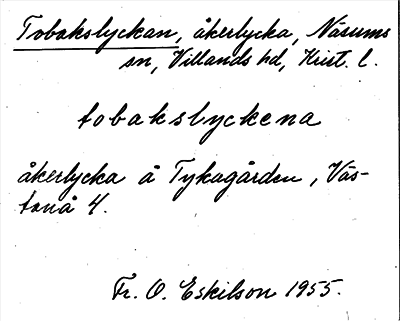 Tobakslyckan, åkerlycka, Näsums
sn, Villands hd, Krist. l.
tobakslyckena
åkerlycka å Tykagården, Väs-
tanå 4.
Fr. O. Eskilson 1955.